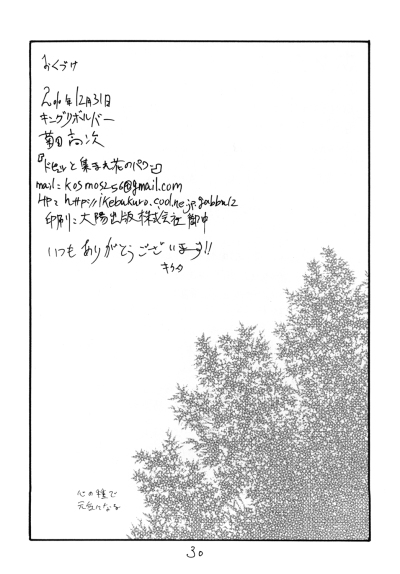 おくづけ
2010年12月31日
キングリボルバー
菊田高次
『ドピュッと集まれ花のパワー』
mail=kosmos256@gmail.com
HP=http://ikebukuro.cool.ne.jp/gabba12
印刷=大陽出版株式会社御中
いつもありがとうございます!!
キクタ
心の種で
元気になる
30